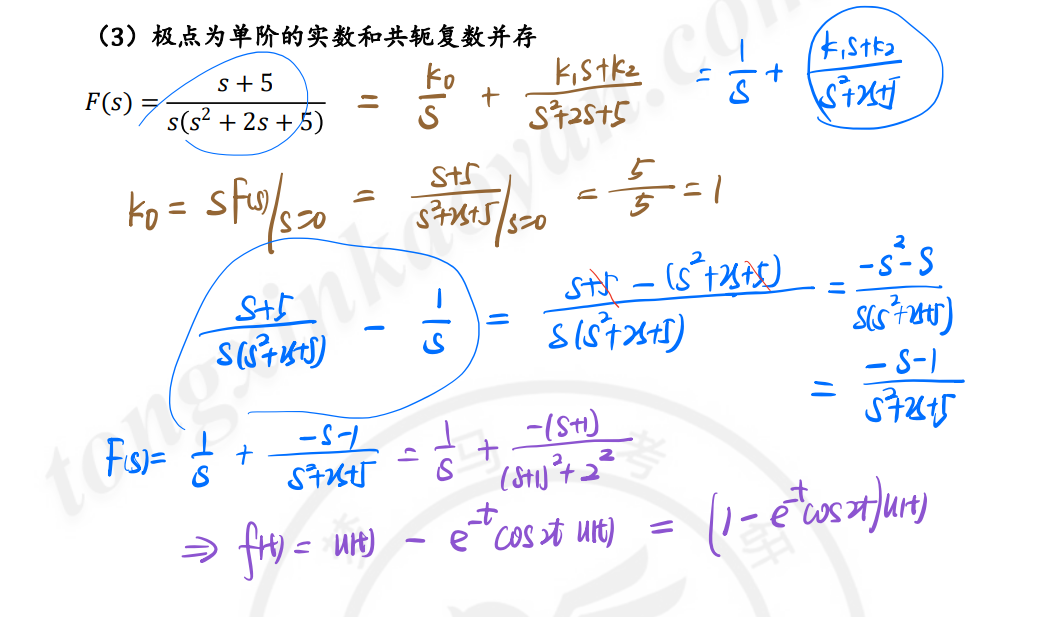 （3）极点为单阶的实数和共轭复数并存
F(s) = (s + 5)/(s(s² + 2s + 5)) = k₀/s + (k₁s+k₂)/(s²+2s+5) = 1/s + (k₁s+k₂)/(s²+2s+5)
k₀ = sF(s)/s=0 = (s+5)/(s²+2s+5)/s=0 = 5/5 = 1
(s+5)/(s(s²+2s+5)) - 1/s = (s+5 - (s²+2s+5))/(s(s²+2s+5)) = (-s²-s)/(s(s²+2s+5))
= (-s-1)/(s²+2s+5)
F(s) = 1/s + (-s-1)/(s²+2s+5) = 1/s + (-(s+1))/((s+1)²+2²)
⇒ f(t) = u(t) - e^-t cos2t u(t) = (1 - e^-t cos2t)u(t)
tongxinkaoyan.com